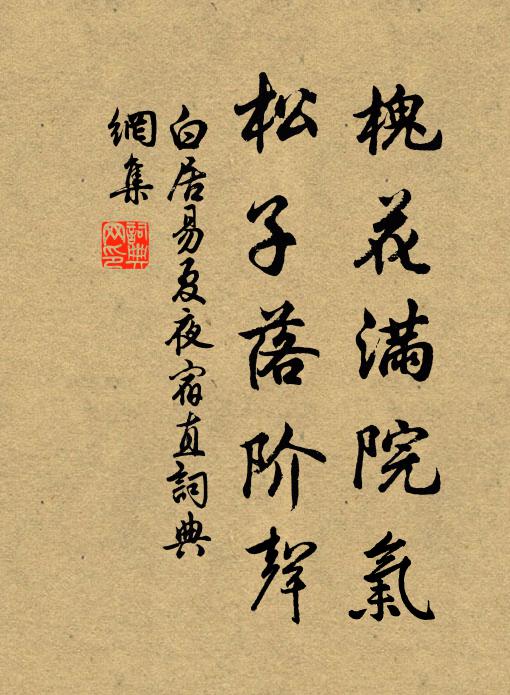 槐花满院氣
松子落阶聲
白居易夏夜宿直詞典
網集
詞典
网印